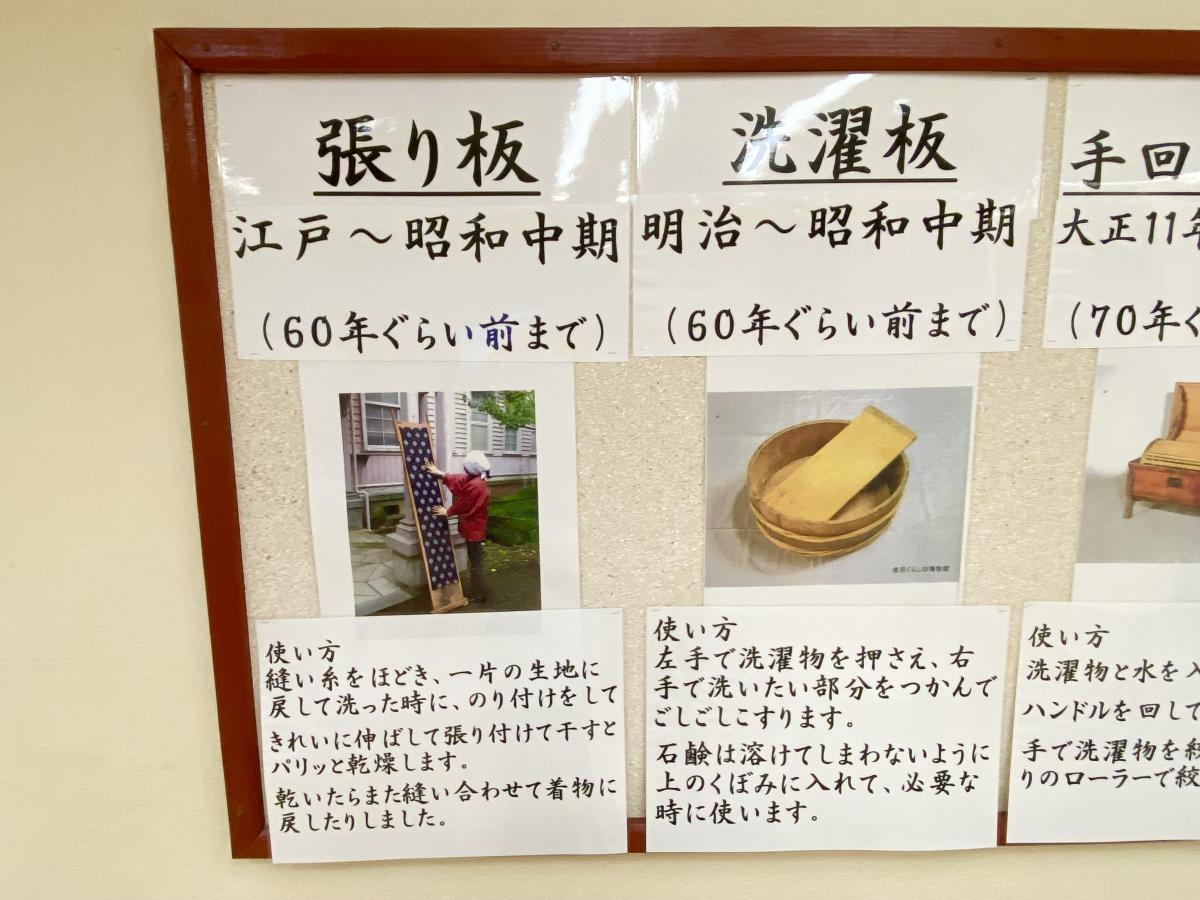 張り板
江戸～昭和中期
(60年ぐらい前まで)
使い方
縫い糸をほどき、一片の生地に
戻して洗った時に、のり付けをして
きれいに伸ばして張り付けて干すと
パリッと乾燥します。
乾いたらまた縫い合わせて着物に
戻したりしました。
洗濯板
明治～昭和中期
(60年ぐらい前まで)
金沢くらしの博物館
使い方
左手で洗濯物を押さえ、右
手で洗いたい部分をつかんで
ごしごしこすります。
石鹸は溶けてしまわないように
上のくぼみに入れて、必要な
時に使います。
手回
大正11年
(70年ぐ
使い方
洗濯物と水を入
ハンドルを回して
手で洗濯物を絞
りのローラーで絞